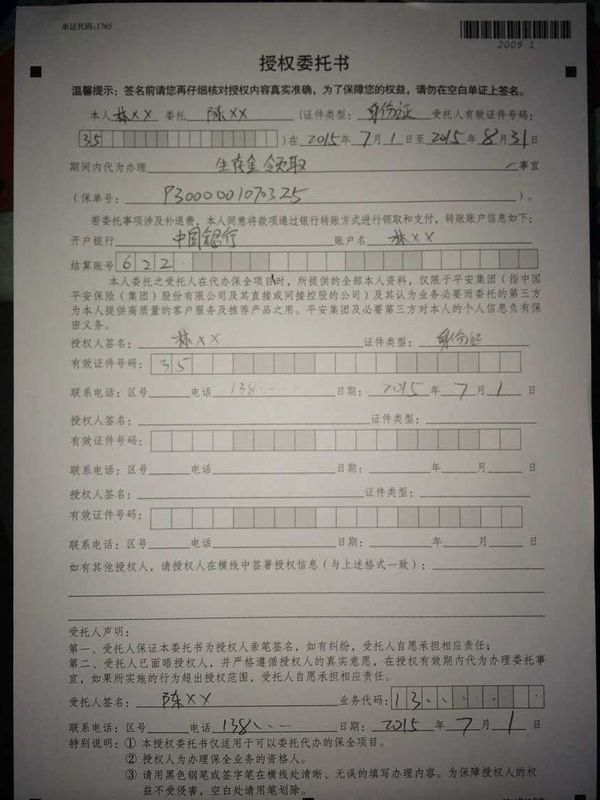 单证代码:1765
2009 1
授权委托书
温馨提示：签名前请您再仔细核对授权内容真实准确，为了保障您的权益，请勿在空白单证上签名。
本人林XX 委托 陈XX (证件类型：身份证 受托人有效证件号码：
35 )在2015年7月1日至2015年8月31日
期间内代为办理 生存金领取 事宜
(保单号： P3000001070325 )。
若委托事项涉及补退费，本人同意将款项通过银行转账方式进行领取和支付，转账账户信息如下：
开户银行 中国银行 账户名 林XX
结算账号 622
本人委托之受托人在代办保全项目时，所提供的全部本人资料，仅限于平安集团（指中国
平安保险（集团）股份有限公司及其直接或间接控股的公司）及其认为业务必要而委托的第三方
为本人提供高质量的客户服务及推荐产品之用。平安集团及必要第三方对本人的个人信息负有保
密义务。
授权人签名： 林XX 证件类型： 身份证
有效证件号码： 35
联系电话：区号 电话 138...... 日期： 2015年7月1日
授权人签名： 证件类型：
有效证件号码：
联系电话：区号 电话 日期： 年 月 日
授权人签名： 证件类型：
有效证件号码：
联系电话：区号 电话 日期： 年 月 日
如有其他授权人，请授权人在横线中签署授权信息（与上述格式一致）：
受托人声明：
第一、受托人保证本委托书为授权人亲笔签名，如有纠纷，受托人自愿承担相应责任；
第二、受托人已面晤授权人，并严格遵循授权人的真实意愿，在授权有效期内代为办理委托事
宜，如果所实施的行为超出授权范围，受托人自愿承担相应责任。
受托人签名： 陈XX 业务代码： 13.....
联系电话：区号 电话 138..... 日期： 2015年7月1日
特别说明：① 本授权委托书仅适用于可以委托代办的保全项目。
② 授权人为办理保全业务的资格人。
③ 请用黑色钢笔或签字笔在横线处清晰、无误的填写办理内容。为保障授权人的权
益不受侵害，空白处请用笔划除。